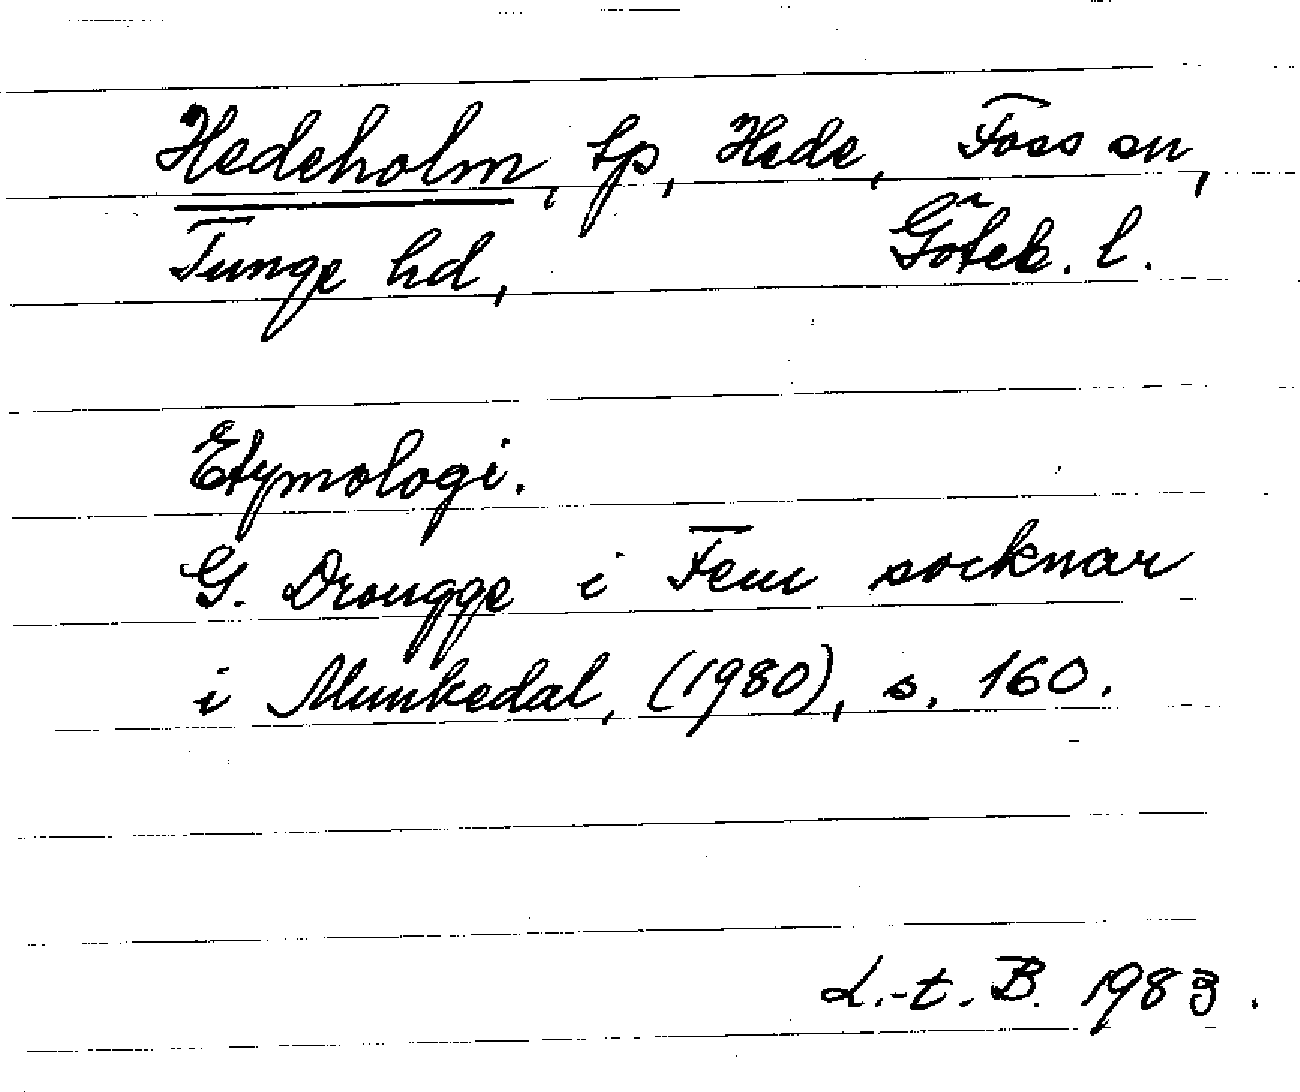 Hedeholm, tp, Hede, Foss sn,
Tunge hd, Göteb. l.
Etymologi.
G. Drougge i Fem socknar
i Munkedal, (1980), s. 160.
L.-t. B. 1983.